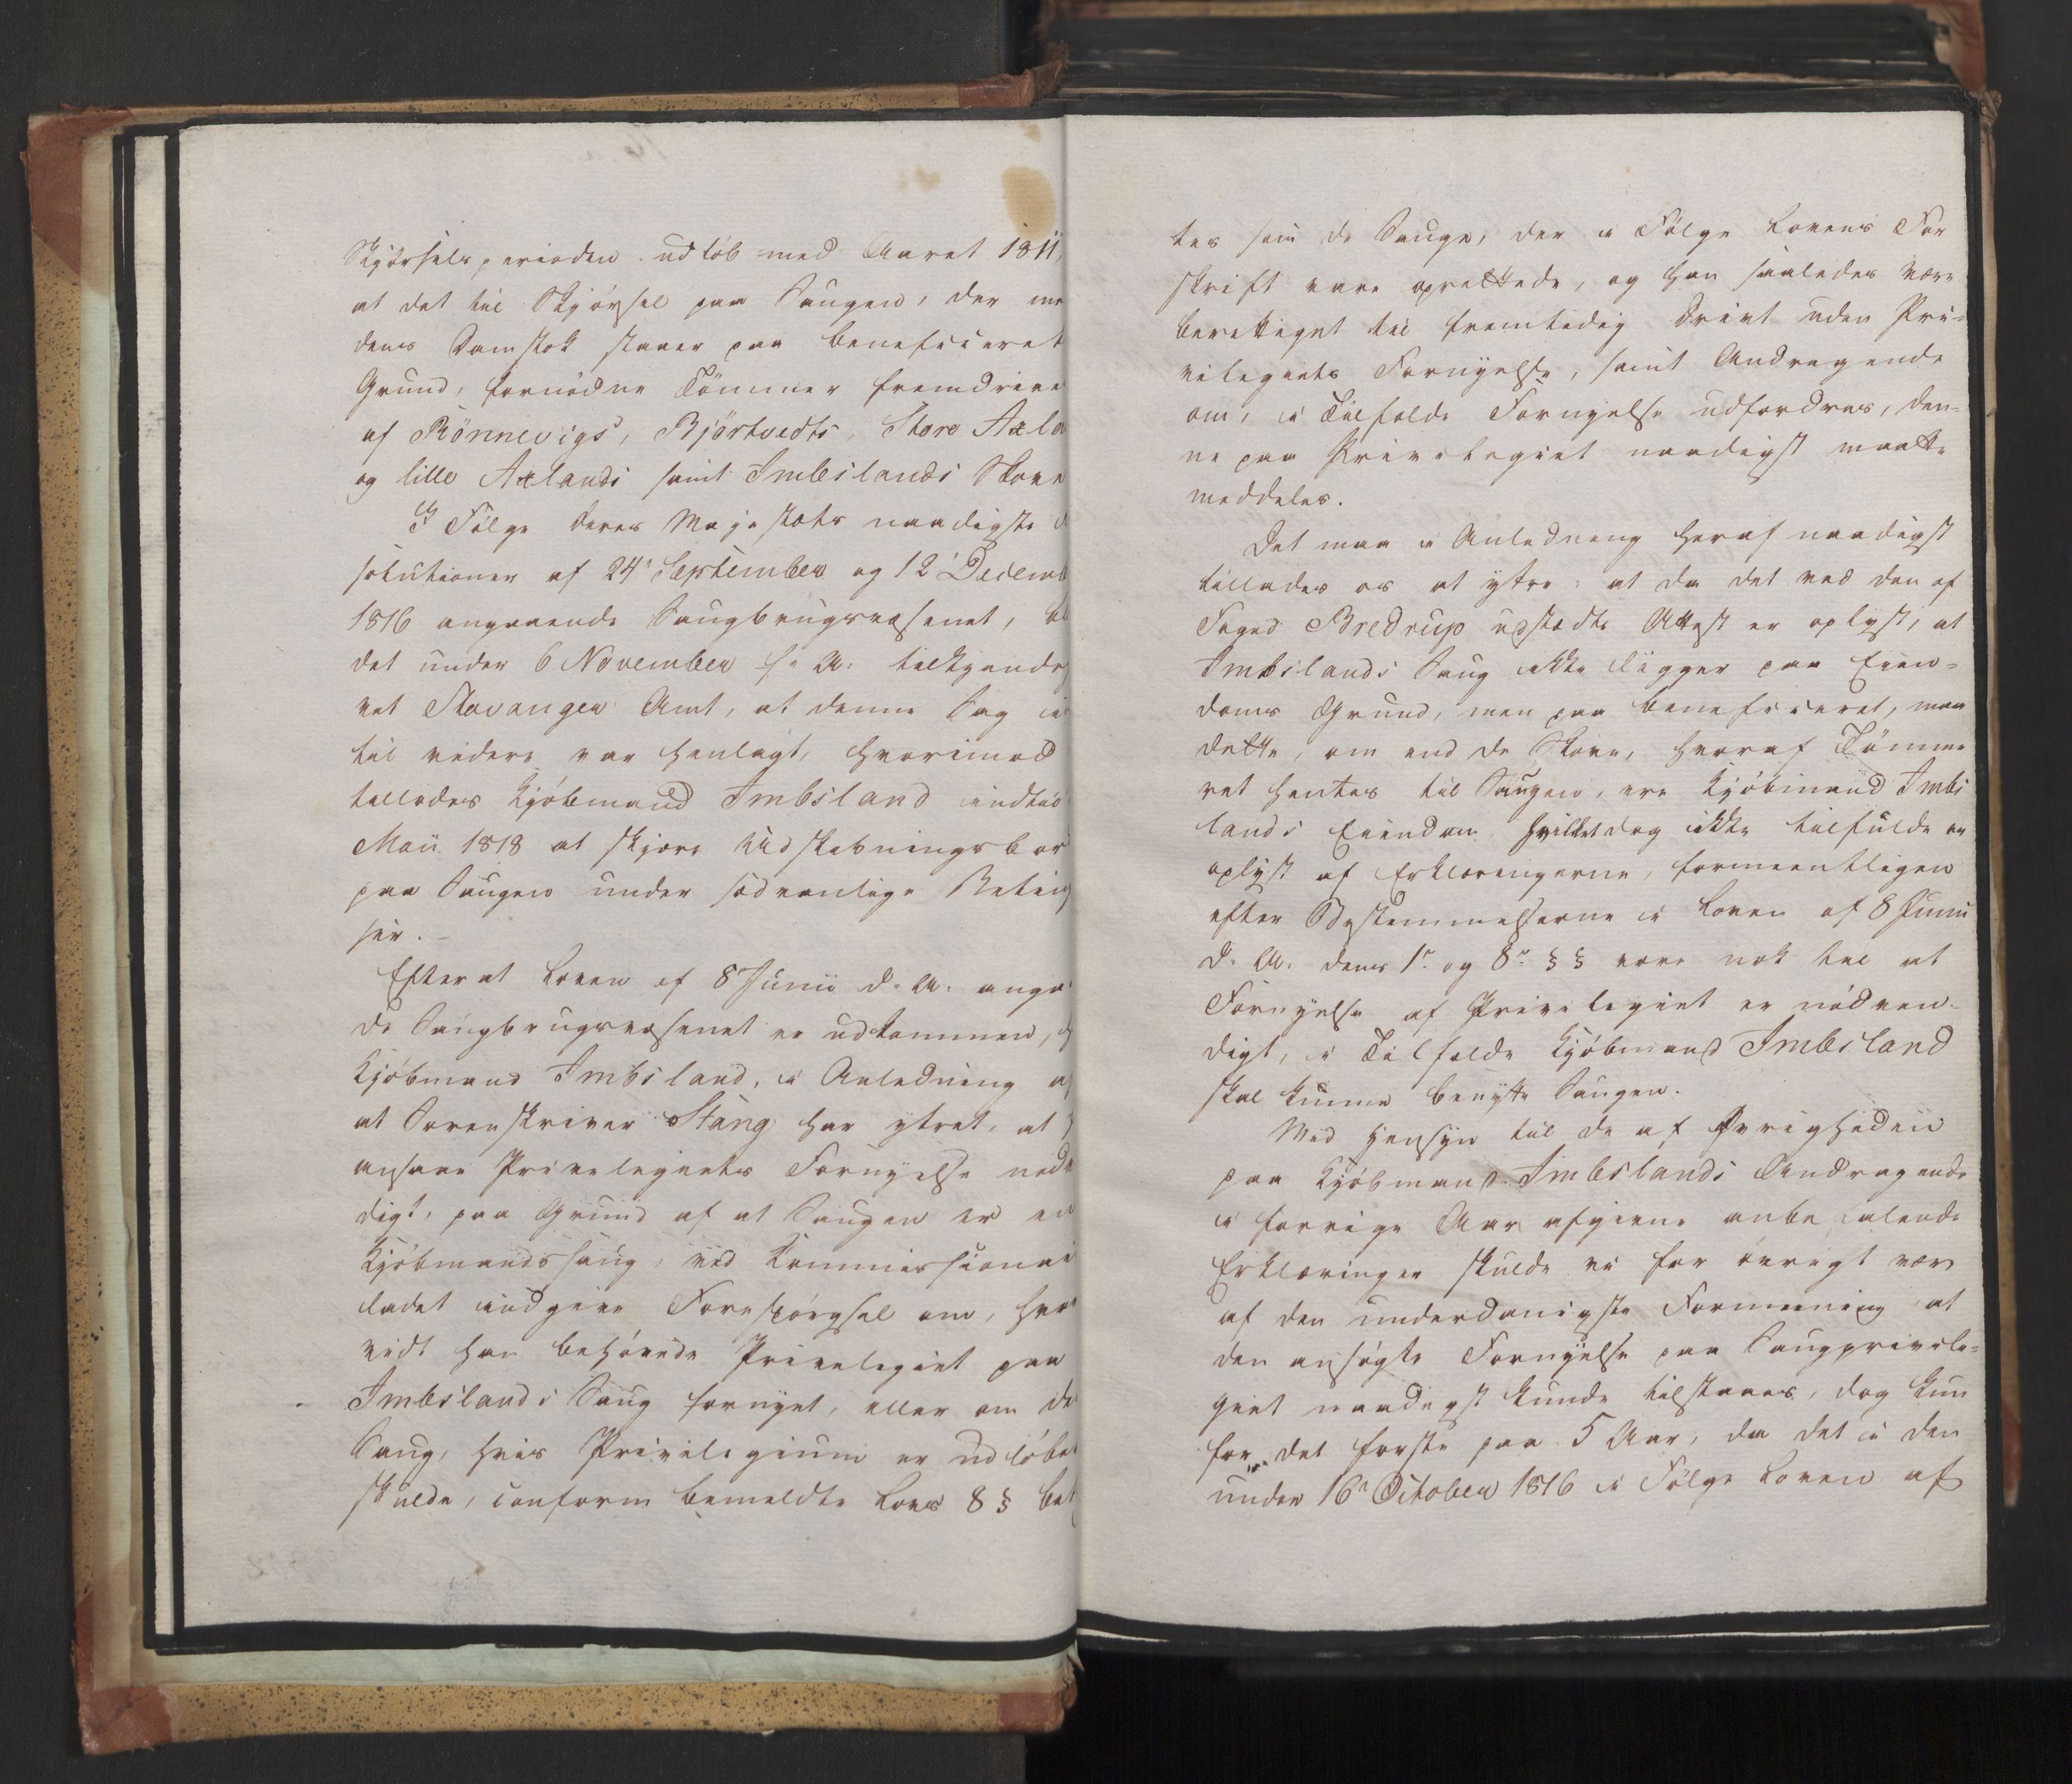 Skjörselsperioden udlöb med Aaret 1811,
at det til Skjörsel paa Saugen, der me
dens Damstok staaer paa beneficeret
Grund, fornödne Tömmer fremdrive
af Rönnevigs, Björtvedts, Store Axla
og lille Axlands samt Imbslands Skove
I Følge Deres Majestæts naadigste
solutioner af 24 September og 12 Decemb
1816 angaaende Saugbrugsvæsenet, bl
det under 6 November s. A. tilkjende
vet Stavanger Amt, at denne Sag in
til videre var henlagt, hvorimod
tillodes Kjöbmand Imbsland indtil
Maii 1818 at skjære Udskibningsbord
paa Saugen under sædvanlige Beting
ser. –
Efterat Loven af 8 Junii d. A. anga
de Saugbrugsvæsenet er udkommen, h
Kjöbmand Imbsland, i Anledning af
at Sorenskriver Stang har ytret, at
ansaae Privilegiets Fornyelse nødv
digt, paa Grund af at Saugen er en
Kjöbmandssaug, ved Kommissionai
ladet indgive Forespörgsel om, hvor
vidt han behövede Privilegiet paa
Imbslands Saug fornyet, eller om de
Saug, hvis Privilegium er udlöbet
skulde, conform bemeldte Lovs 8 § bet
tes som de Sauge, der i Fölge Lovens For
skrift vare oprettede, og han saaledes være
berettiget til fremtidig Drivt uden Pri-
vilegiets Fornyelse, samt Andragende
om, i Tilfælde Fornyelse udfordres, den-
ne paa Privilegiet naadigst maatte
meddeles.
Det maa i Anledning heraf naadigst
tillades os at ytre: at da det ved den af
Foged Bredrup udstædte Attest er oplyst, at
Imbslands Saug ikke ligger paa Eien-
doms Grund, men paa beneficeret, maa
dette, om end de Skove, hvoraf Tömme
ret hentes til Saugen, ere Kjöbmand Imbs
lands Eiendom, hvilket dog ikke tilfulde er
oplyst af Erklæringerne, formeentligen
efter Bestemmelserne i Loven af 8 Junii
d. A. dens 1ste og 8de §§ være nok til at
Fornyelse af Privilegiet er nödven-
digt, i Tilfælde Kjöbmand Imbsland
skal kunne benytte Saugen.
Med Hensyn til de af Øvrigheden
paa Kjöbmand Imbslands Andragende
i forrige Aar afgivne anbefalende
Erklæringer skulde vi for övrigt være
af den underdanigste Formeening at
den ansøgte Fornyelse paa Saugprivile-
giet naadigst kunde tilstaaes, dog kun
for det første paa 5 Aar, da det i den
under 16 October 1816 i Følge Loven af